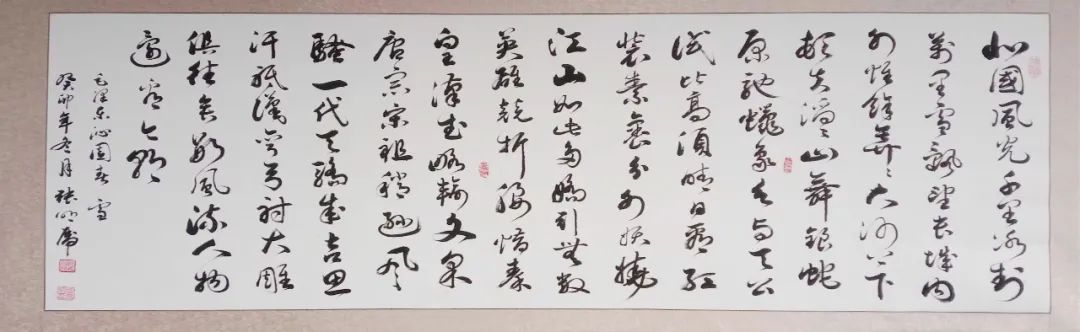 北國風光千里冰封
萬里雪飄望長城内
外惟餘莽〻大河上下
頓失滔〻山舞銀蛇
原馳蠟象欲与天公
試比高須晴日看紅
裝素裹分外妖嬈
江山如此多嬌引無數
英雄競折腰惜秦
皇漢武略輸文采
唐宗宋祖稍遜風
騷一代天驕成吉思
汗祇識彎弓射大雕
俱往矣數風流人物
還看今朝
毛澤东沁園春 雪
癸卯年冬月